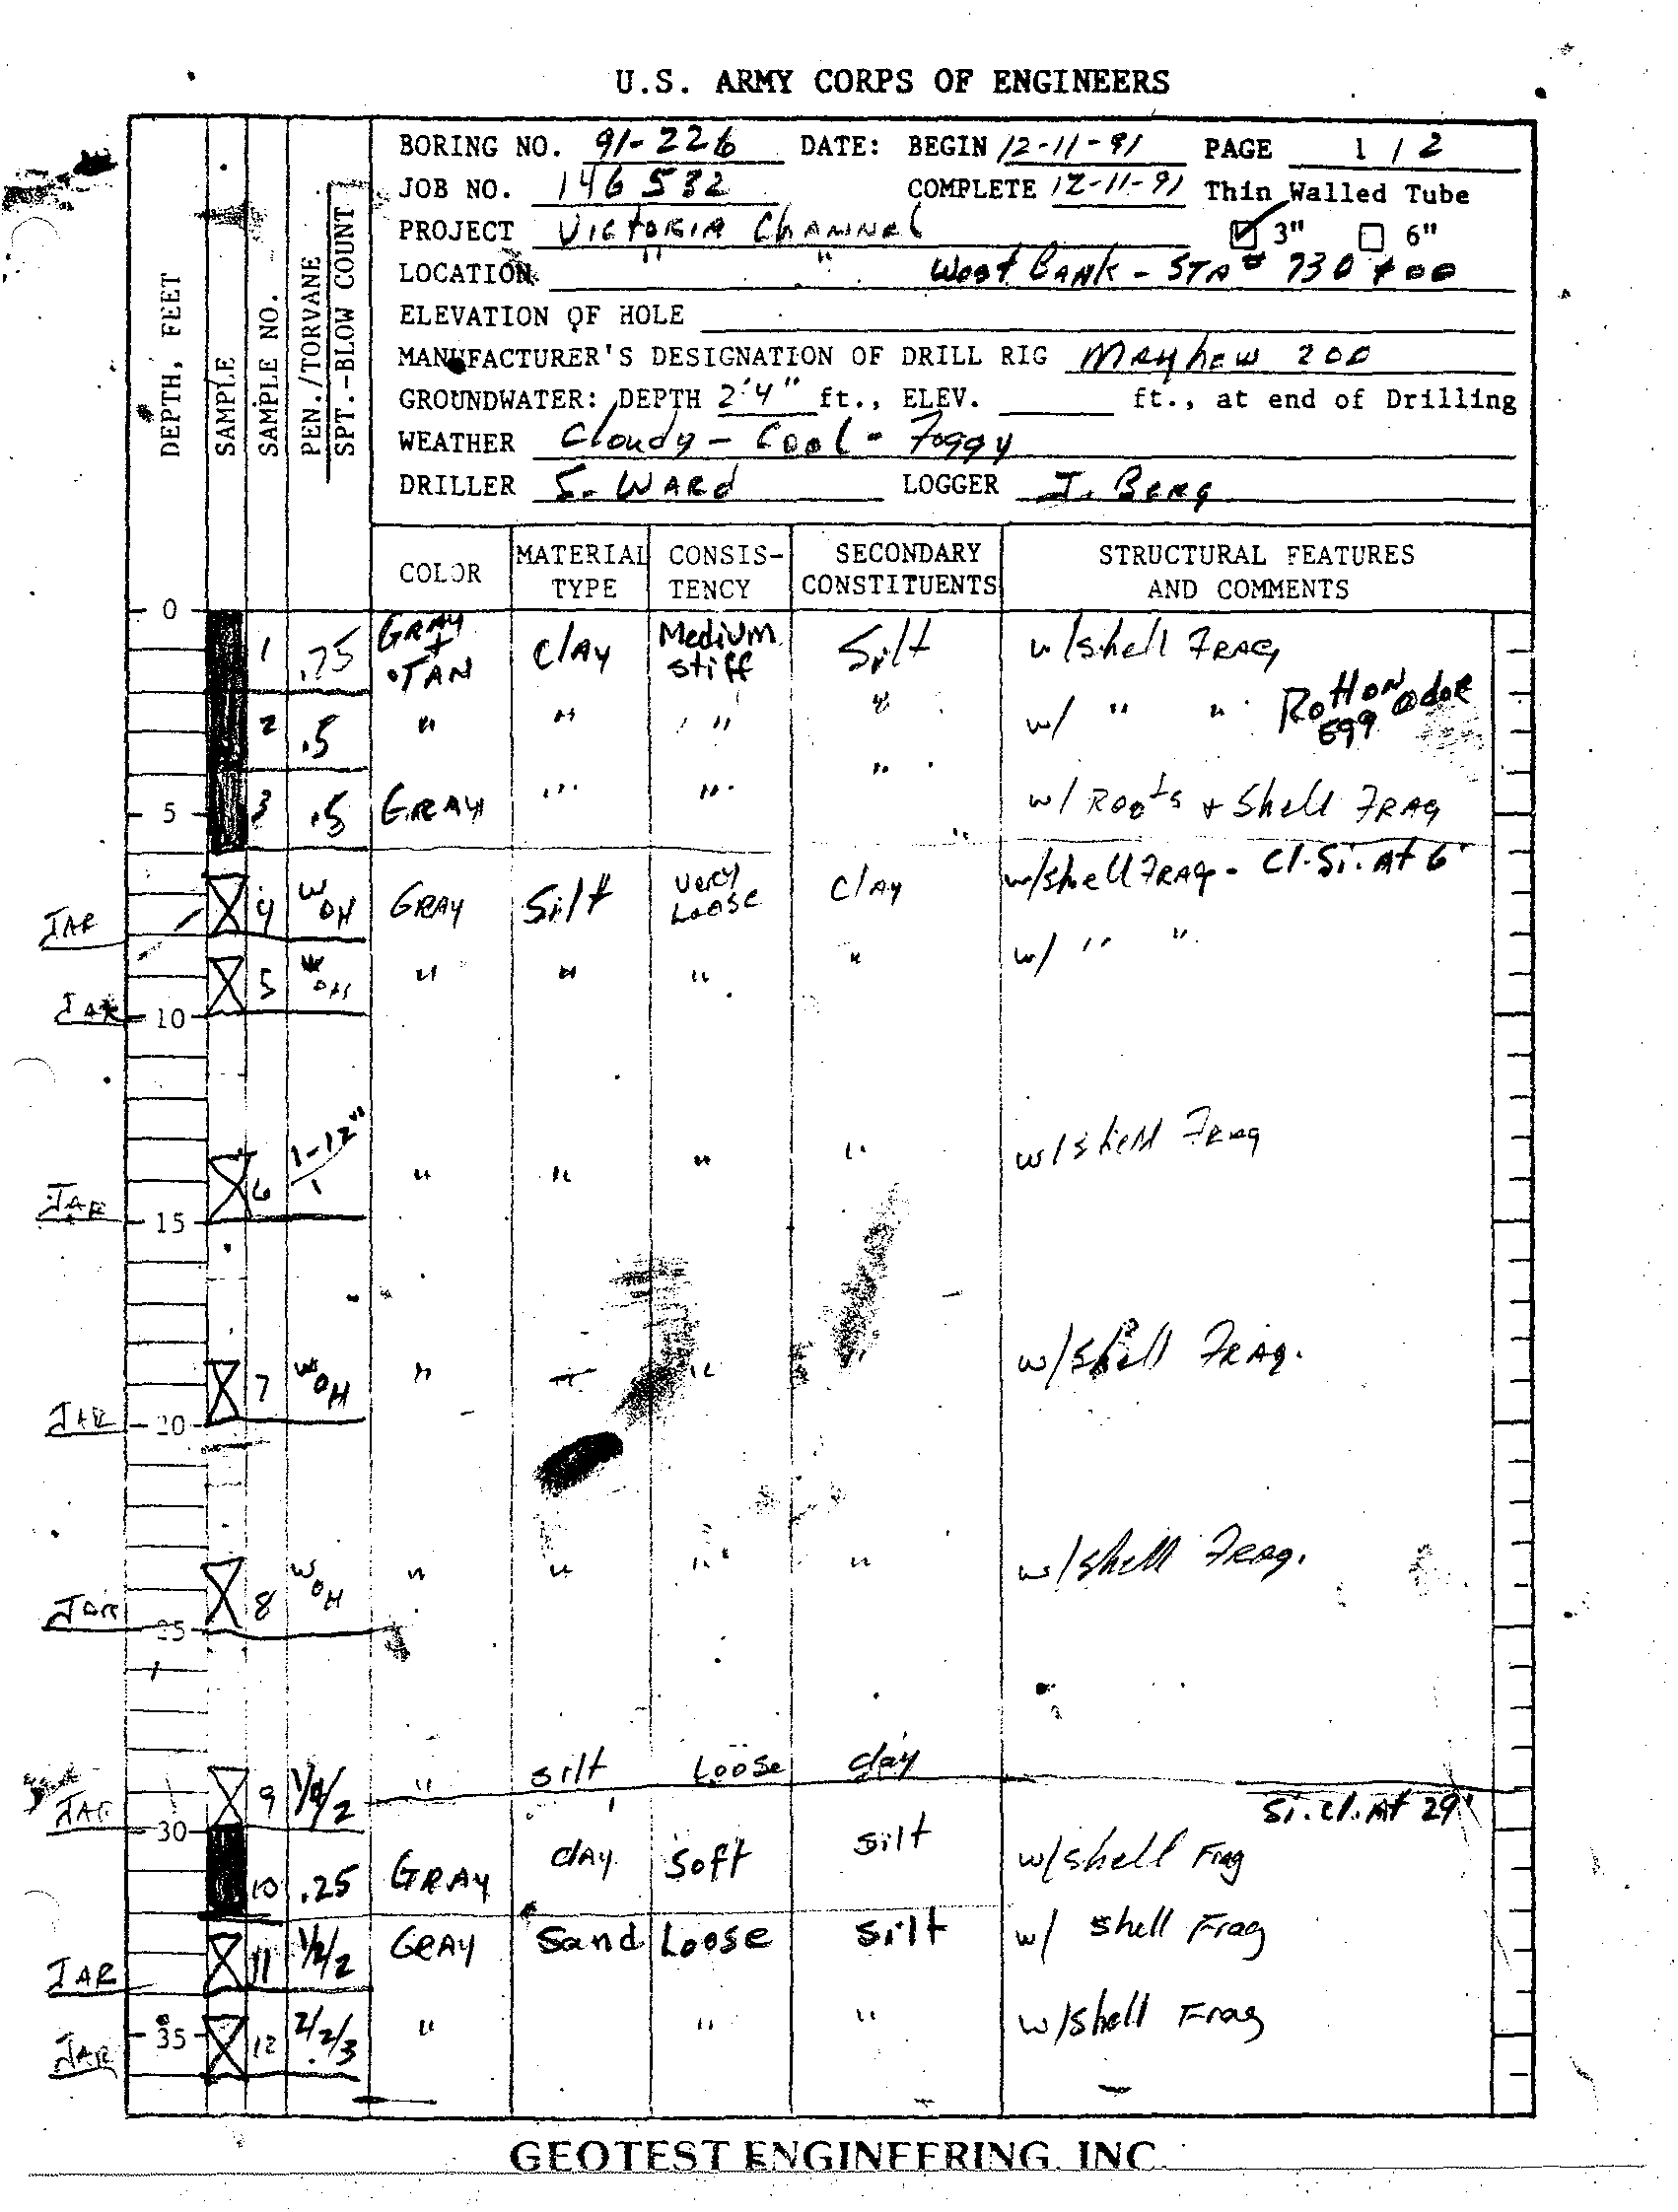 U.S. ARMY CORPS OF ENGINEERS
BORING NO. 91-226 DATE: BEGIN 12-11-91 PAGE 1 / 2
JOB NO. 146532 COMPLETE 12-11-91 Thin Walled Tube
PROJECT Victoria Channel ☑ 3" ☐ 6"
LOCATION " " West Bank - STA # 730+00
ELEVATION OF HOLE
MANUFACTURER'S DESIGNATION OF DRILL RIG Mayhew 200
GROUNDWATER: DEPTH 2'4" ft., ELEV. ft., at end of Drilling
WEATHER Cloudy - Cool - Foggy
DRILLER S. Ward LOGGER J. Berg
DEPTH, FEET SAMPLE SAMPLE NO. PEN./TORVANE SPT.-BLOW COUNT
COLOR MATERIAL TYPE CONSIS-TENCY SECONDARY CONSTITUENTS STRUCTURAL FEATURES AND COMMENTS
0
1 .75 Gray + Tan Clay Medium stiff Silt w/shell Frag
2 .5 " " " " w/ " " Rotton egg odor
5 3 .5 Gray " " " w/ Roots + Shell Frag
JAR 4 WOH Gray Silt very Loose Clay " w/shell Frag - Cl. Si. At 6'
JAR 10 5 WOH " " " " w/ " "
JAR 15 6 1-12"/1 " " " " w/shell Frag
JAR 20 7 WOH " " " " w/shell Frag.
JAR 25 8 WOH " " " " w/shell Frag.
JAR 9 " silt Loose clay
Si. Cl. At 29'
30 10 .25 Gray clay Soft silt w/shell Frag
JAR 11 1/2/2 Gray Sand Loose Silt w/ shell Frag
JAR 35 12 2/2/3 " " " w/shell Frag
GEOTEST ENGINEERING, INC.